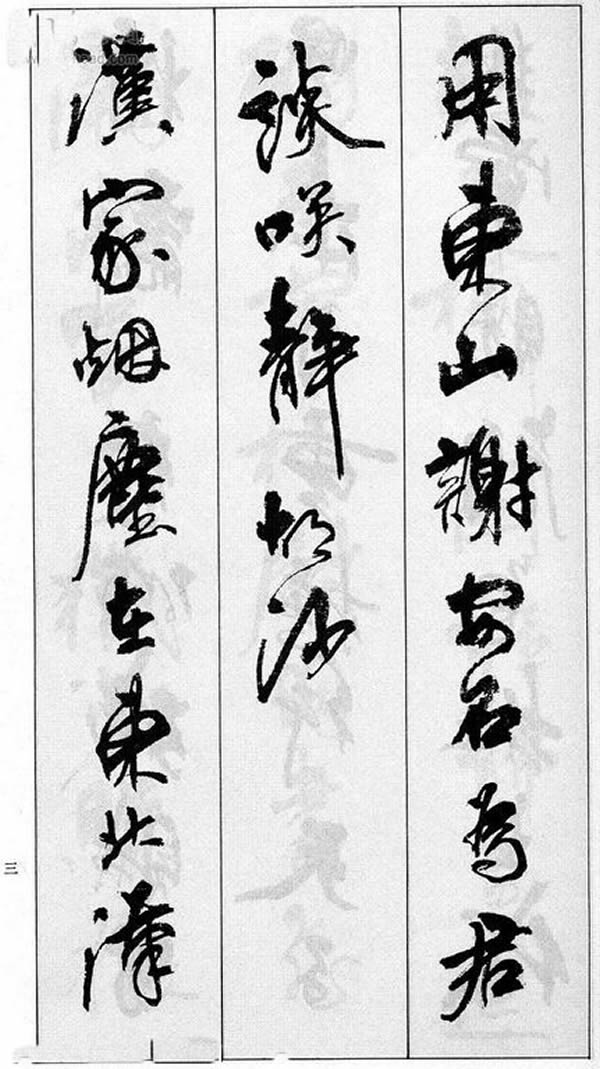 用東山謝安石為君
談咲静胡沙
漢家烟塵在東北漢
三